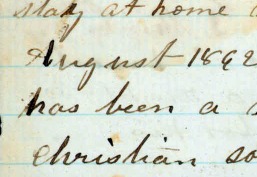 stay at home
August 1892
has been a
Christian so